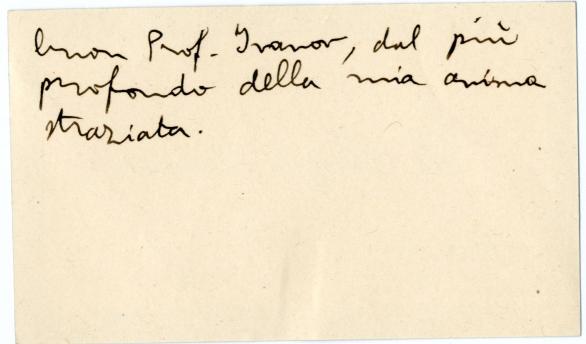 buon Prof. Ivanov, dal più
profondo della mia anima
straziata.